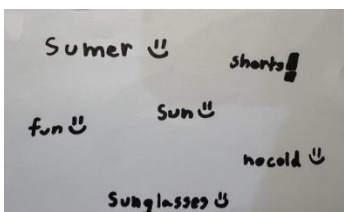 Sumer
shorts!
fun
Sun
nocold
Sunglasses